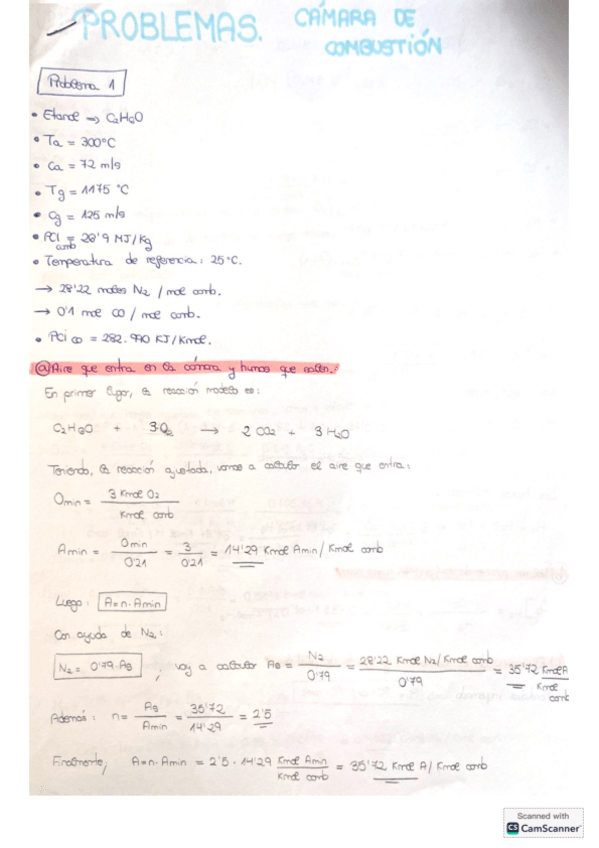 PROBLEMAS. CÁMARA DE COMBUSTIÓN
Problema 1
• Etanol → C2H6O
• Ta = 300°C
• Ca = 72 m/s
• Tg = 1175 °C
• Cg = 125 m/s
• PCI comb = 28'9 MJ/Kg
• Temperatura de referencia: 25°C.
→ 28'22 moles N2 / mol comb.
→ 0'1 mol CO / mol comb.
• PCI CO = 282.990 KJ/Kmol.
@ Aire que entra en la cámara y humos que salen.
En primer lugar, la reacción modelo es:
C2H6O + 3O2 → 2 CO2 + 3 H2O
Teniendo, la reacción ajustada, vamos a calcular el aire que entra:
Omin = 3 Kmol O2 / Kmol comb
Amin = Omin / 0'21 = 3 / 0'21 = 14'29 Kmol Amin / Kmol comb
Luego: A = n · Amin
Con ayuda de N2:
N2 = 0'79 · AB ; voy a calcular AB = N2 / 0'79 = 28'22 Kmol N2/Kmol comb / 0'79 = 35'72 Kmol A / Kmol comb
Además: n = AB / Amin = 35'72 / 14'29 = 2'5
Finalmente, A = n · Amin = 2'5 · 14'29 Kmol Amin / Kmol comb = 35'72 Kmol A / Kmol comb
Scanned with
CS CamScanner